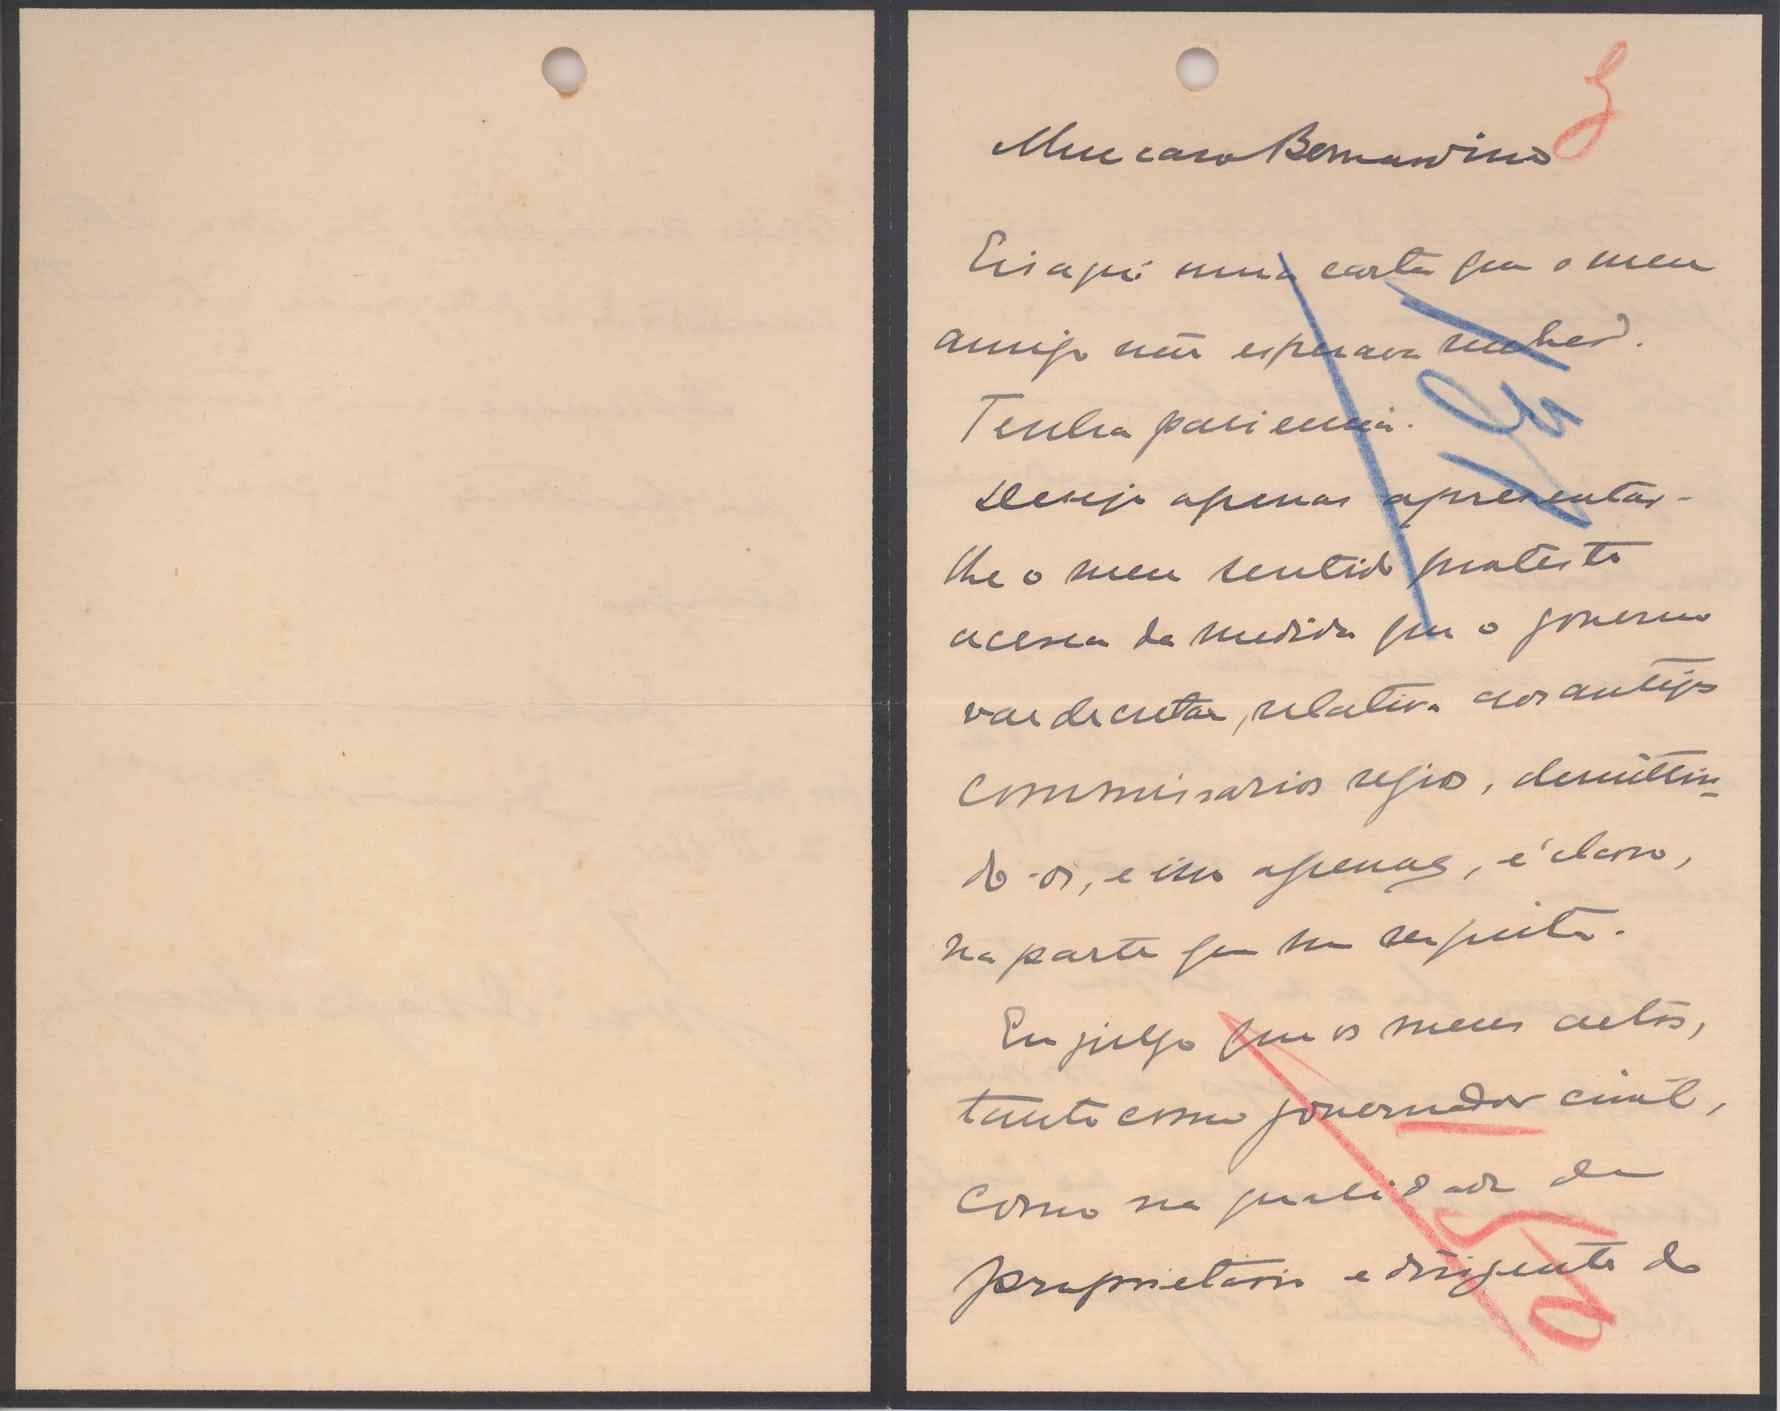 Meu caro Bernardino
Eis aqui uma carta que o meu
amigo não esperava receber.
Tenha paciencia.
Desejo apenas apresentar-
lhe o meu sentido protesto
acerca da medida que o governo
vae decretar, relativa aos antigos
commissarios regios, demittin-
do-os, e isso apenas, é claro,
na parte que me respeita.
Eu julgo que os meus actos,
tanto como governador civil,
como na qualidade de
proprietario e dirigente do